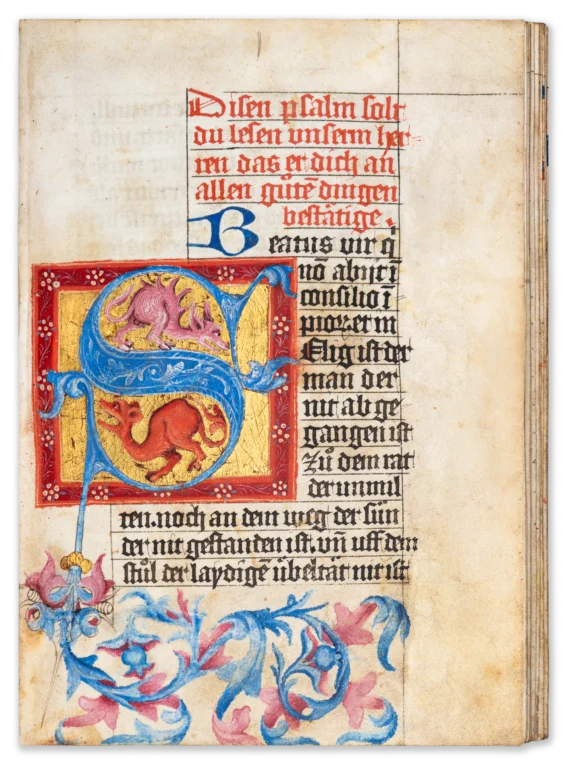 Disen psalm solt
du lesen vnserm her
ren das er dich an
allen gůtē dingen
bestätige.
Beatus vir q̄
nō abijt ī
consilio ī
pioꝝ et in
Sälig ist der
man der
nit ab ge
gangen ist
zů dem rat
der vnmil
ten. noch an dem weg der sün
der nit gestanden ist. vn̄ uff dem
stůl der laydigē übeltät nit ist